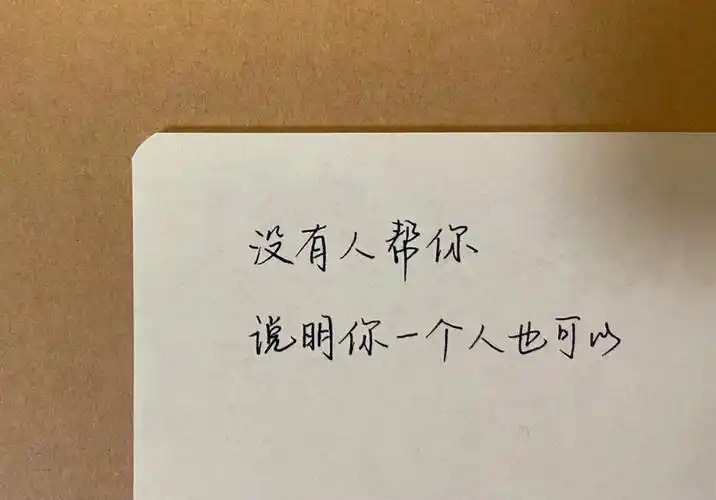 没有人帮你
说明你一个人也可以